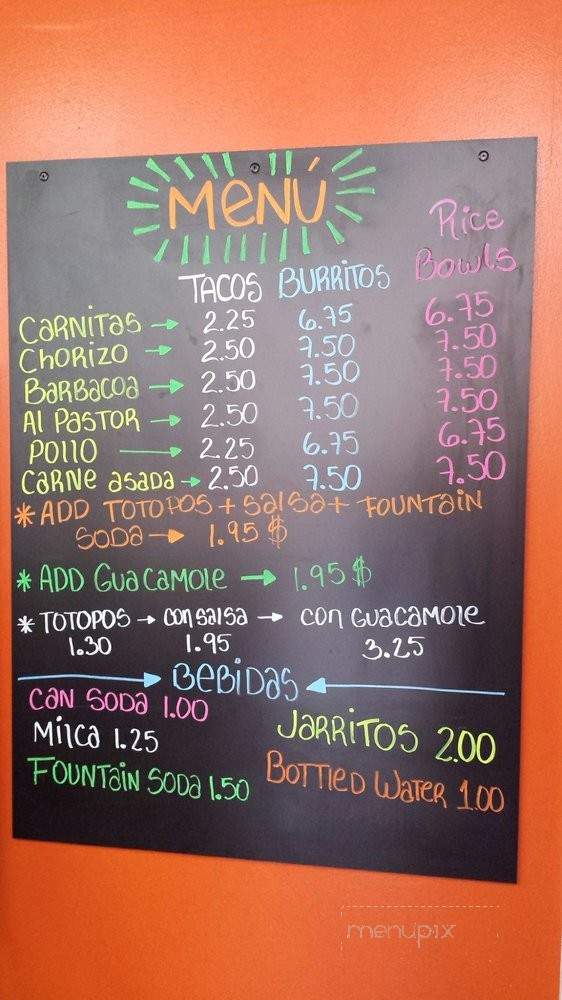 MENÚ
Rice
TACOS BURRITOS Bowls
CARNITAS → 2.25 6.75 6.75
CHORIZO → 2.50 7.50 7.50
BARBACOA → 2.50 7.50 7.50
Al PASTOR → 2.50 7.50 7.50
POllO → 2.25 6.75 6.75
CARNE asada → 2.50 7.50 7.50
* ADD TOTOPOS + Salsa + FOUNTAIN
SODA → 1.95 $
* ADD GuaCAMOLE → 1.95 $
* TOTOPOS → CON salsa → CON GUACAMOLE
1.30 1.95 3.25
→ BEBIDAS ←
CAN SODA 1.00
JARRITOS 2.00
Milca 1.25
BOTTlED WATER 1.00
FOUNTAIN SODA 1.50
menupix